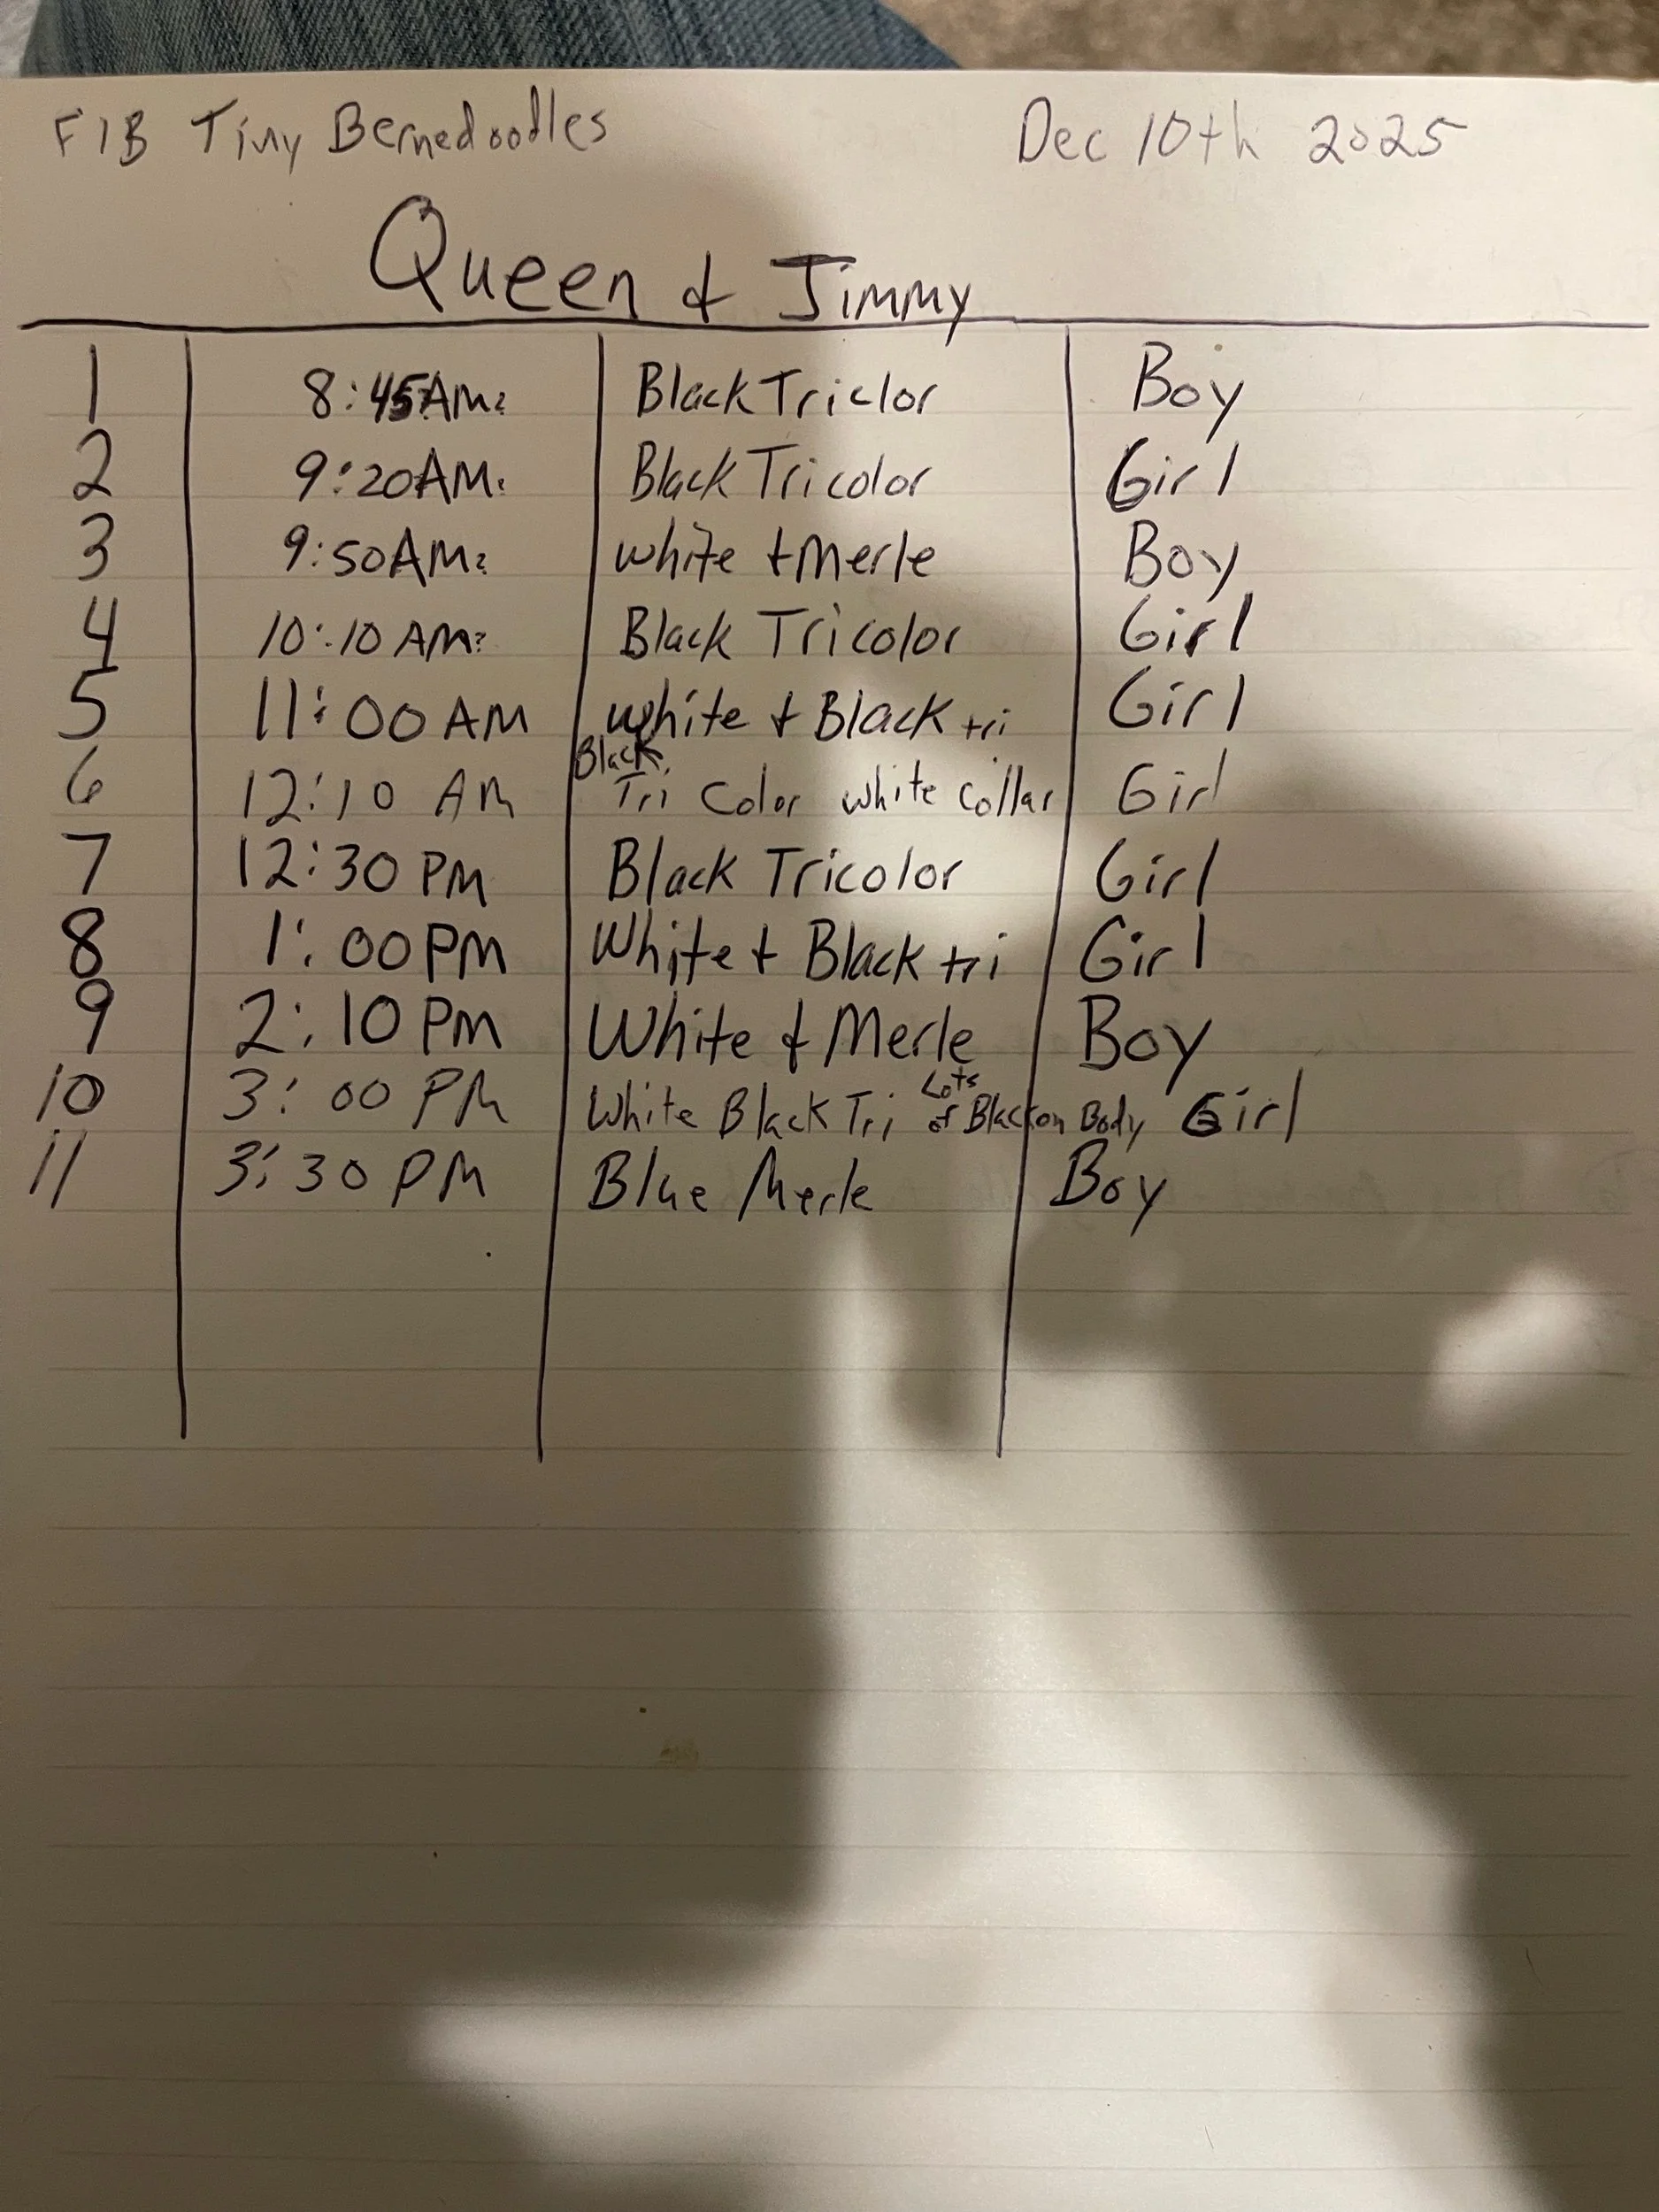 F1B Tiny Bernedoodles Dec 10th 2025
Queen & Jimmy
1 8:45AM? Black Triclor Boy
2 9:20AM? Black Tricolor Girl
3 9:50AM? white + Merle Boy
4 10:10 AM? Black Tricolor Girl
5 11:00 AM white + Black tri Girl
6 12:10 AM Black Tri Color white Collar Girl
7 12:30 PM Black Tricolor Girl
8 1:00 PM White + Black tri Girl
9 2:10 PM White & Merle Boy
10 3:00 PM White Black Tri Lots of Black on Body Girl
11 3:30 PM Blue Merle Boy